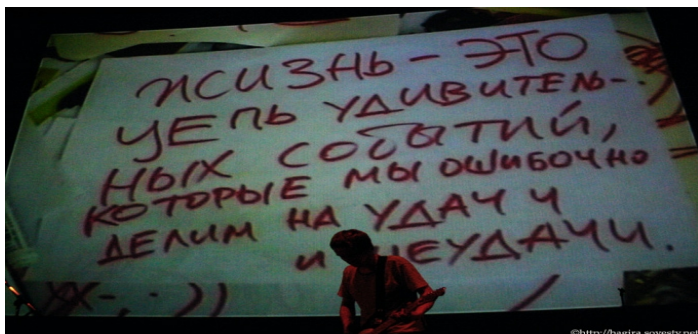 ЖИЗНЬ – ЭТО
ЦЕПЬ УДИВИТЕЛЬ-
НЫХ СОБЫТИЙ,
КОТОРЫЕ МЫ ОШИБОЧНО
ДЕЛИМ НА УДАЧИ
И НЕУДАЧИ.
©http://bagira.sovesty.net